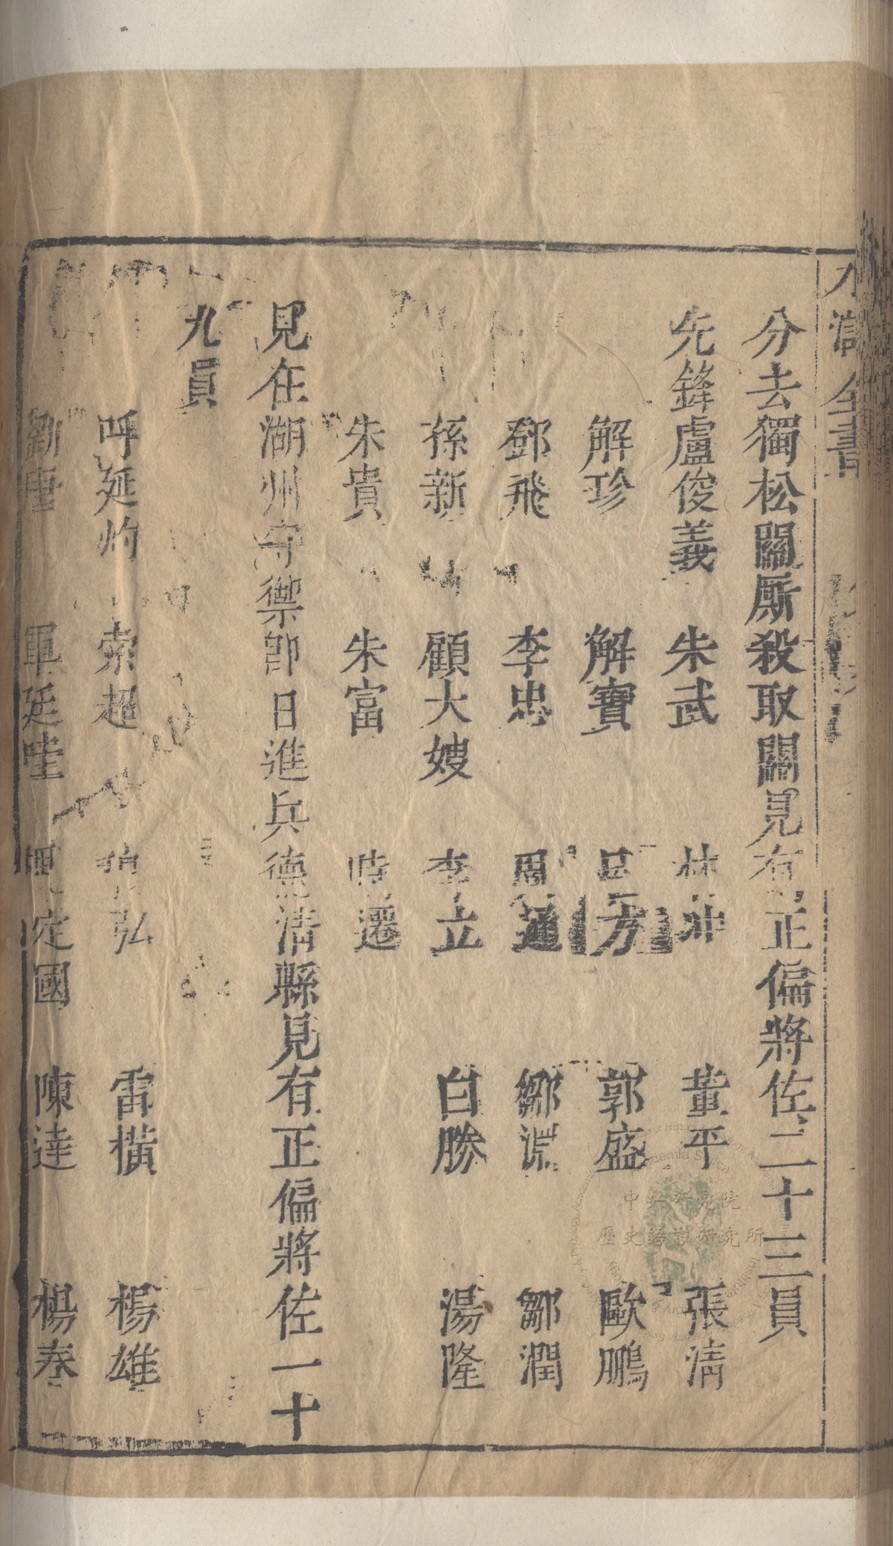 水滸全書
分去獨松關厮殺取關見有正偏將佐二十三員
先鋒盧俊義 朱武 林冲 董平 張清
解珍 解寶 呂方 郭盛 歐鵬
鄧飛 李忠 周通 鄒淵 鄒潤
孫新 顧大嫂 李立 白勝 湯隆
朱貴 朱富 時遷
見在湖州守禦即日進兵德清縣見有正偏將佐一十
九員
呼延灼 索超 穆弘 雷橫 楊雄
劉唐 單廷珪 魏定國 陳達 楊春
中央研究院
歷史語言研究所